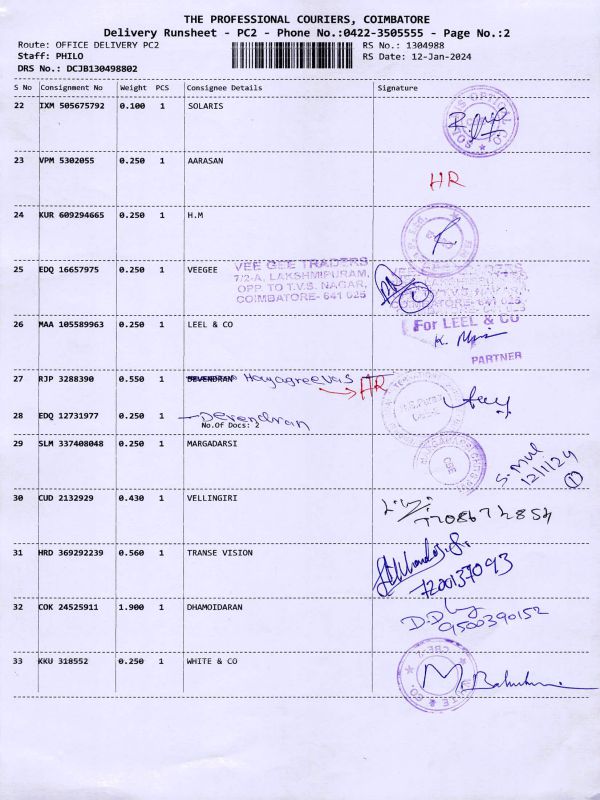 THE PROFESSIONAL COURIERS, COIMBATORE
Delivery Runsheet - PC2 - Phone No.:0422-3505555 - Page No.:2
Route: OFFICE DELIVERY PC2 RS No.: 1304988
Staff: PHILO RS Date: 12-Jan-2024
DRS No.: DCJB130498802
S No Consignment No Weight PCS Consignee Details Signature
22 IXM 505675792 0.100 1 SOLARIS
23 VPM 5302055 0.250 1 AARASAN
HR
24 KUR 609294665 0.250 1 H.M
25 EDQ 16657975 0.250 1 VEEGEE
VEE GEE TRADERS
7/2-A, LAKSHMIPURAM,
OPP. TO T.V.S. NAGAR,
COIMBATORE- 641 025
26 MAA 105589963 0.250 1 LEEL & CO
For LEEL & CO
PARTNER
27 RJP 3288390 0.550 1 DEVENDRAN Hayagreevas
HR
28 EDQ 12731977 0.250 1 Devendran
No.Of Docs: 2
29 SLM 337408048 0.250 1 MARGADARSI
12/1/24
1
30 CUD 2132929 0.430 1 VELLINGIRI
31 HRD 369292239 0.560 1 TRANSE VISION
7200137093
32 COK 24525911 1.900 1 DHAMOIDARAN
9500390152
33 KKU 318552 0.250 1 WHITE & CO